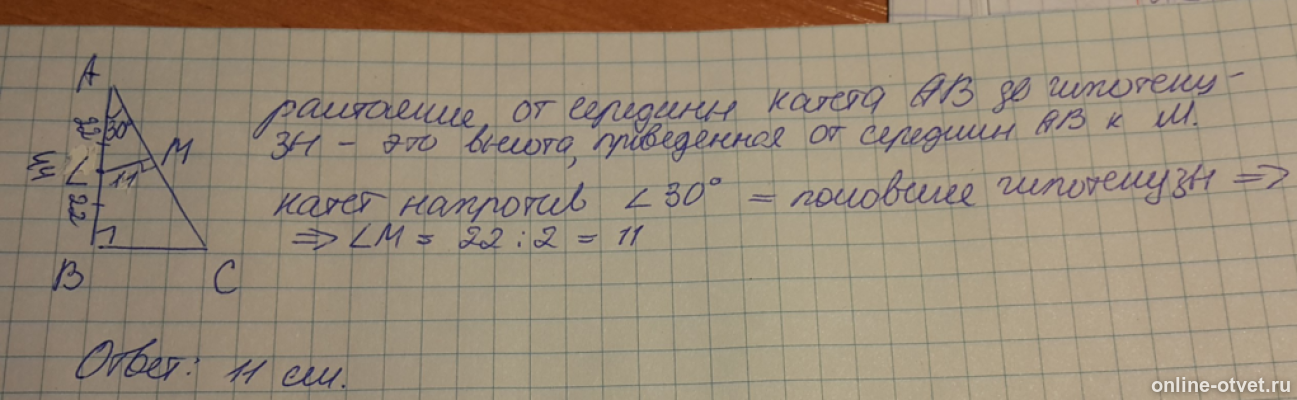 A
22
30
M
L
11
22
B
C
растояние от середины катета AB до гипотену-
зы - это высота, проведенная от середины AB к M.
катет напротив ∠30° = половине гипотенузы =>
=> LM = 22 : 2 = 11
Ответ: 11 см.
online-otvet.ru